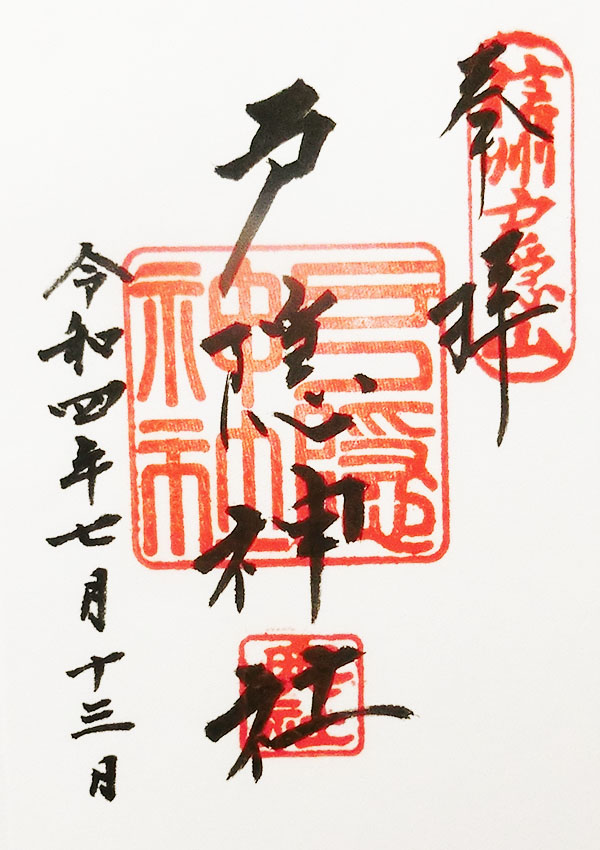 信州戸隠山
奉拝
戸隠神社
戸隠
神社
令和四年七月十三日